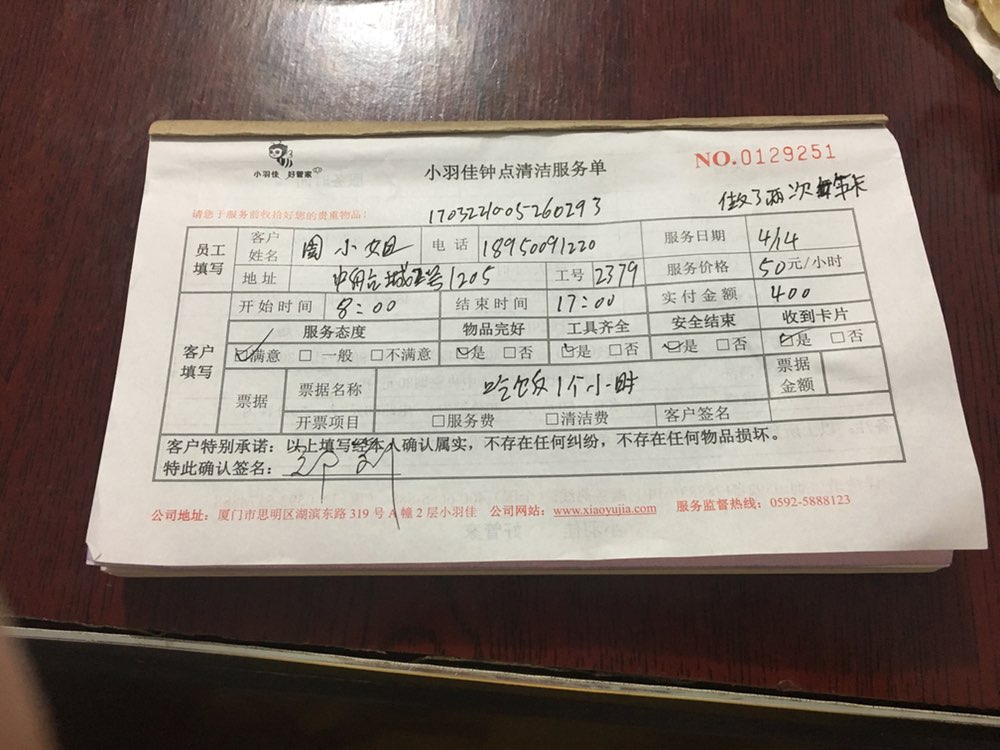 小羽佳 好管家
小羽佳钟点清洁服务单
NO.0129251
做了两次 年卡
请您于服务前收拾好您的贵重物品！
1703221005260293
员工填写
客户姓名 周小姐 电话 18950091220 服务日期 4/14
地址 1205 工号 2379 服务价格 50元/小时
客户填写
开始时间 8:00 结束时间 17:00 实付金额 400
服务态度 物品完好 工具齐全 安全结束 收到卡片
☑满意 □一般 □不满意 ☑是 □否 ☑是 □否 ☑是 □否 ☑是 □否
票据 票据名称 吃饭1个小时 票据金额
开票项目 □服务费 □清洁费 客户签名
客户特别承诺：以上填写经本人确认属实，不存在任何纠纷，不存在任何物品损坏。
特此确认签名：
公司地址：厦门市思明区湖滨东路 319 号 A 幢 2 层小羽佳 公司网站：www.xiaoyujia.com 服务监督热线：0592-5888123